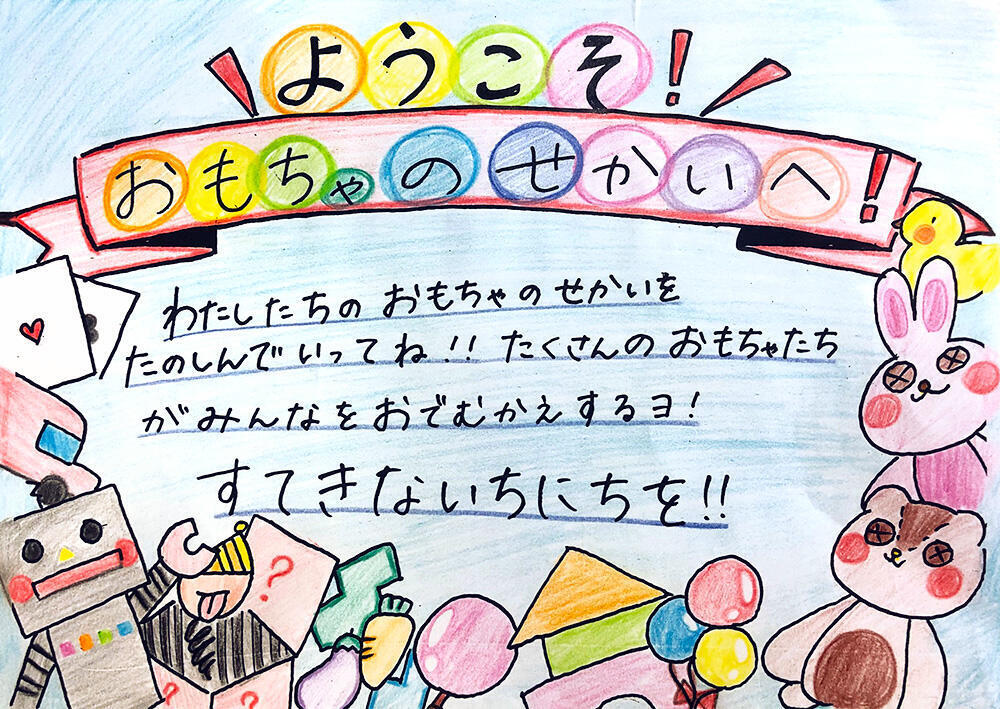 ようこそ!
おもちゃのせかいへ!
わたしたちの おもちゃの せかいを
たのしんで いってね!! たくさんの おもちゃたち
がみんなをおでむかえするヨ!
すてきないちにちを!!
?
?
?